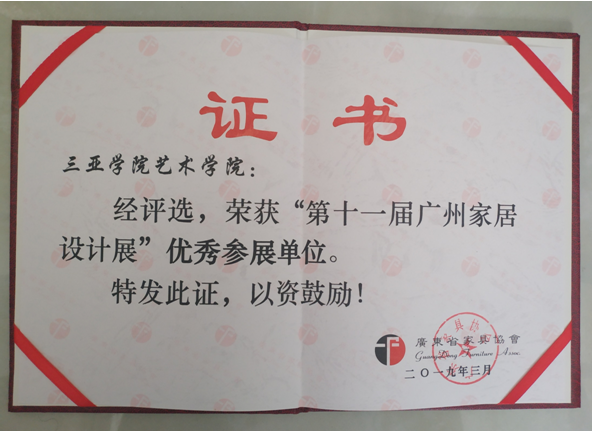 证书
三亚学院艺术学院：
经评选，荣获“第十一届广州家居
设计展”优秀参展单位。
特发此证，以资鼓励！
廣東省家具協會
GuangDong Furniture Assoc.
二〇一九年三月